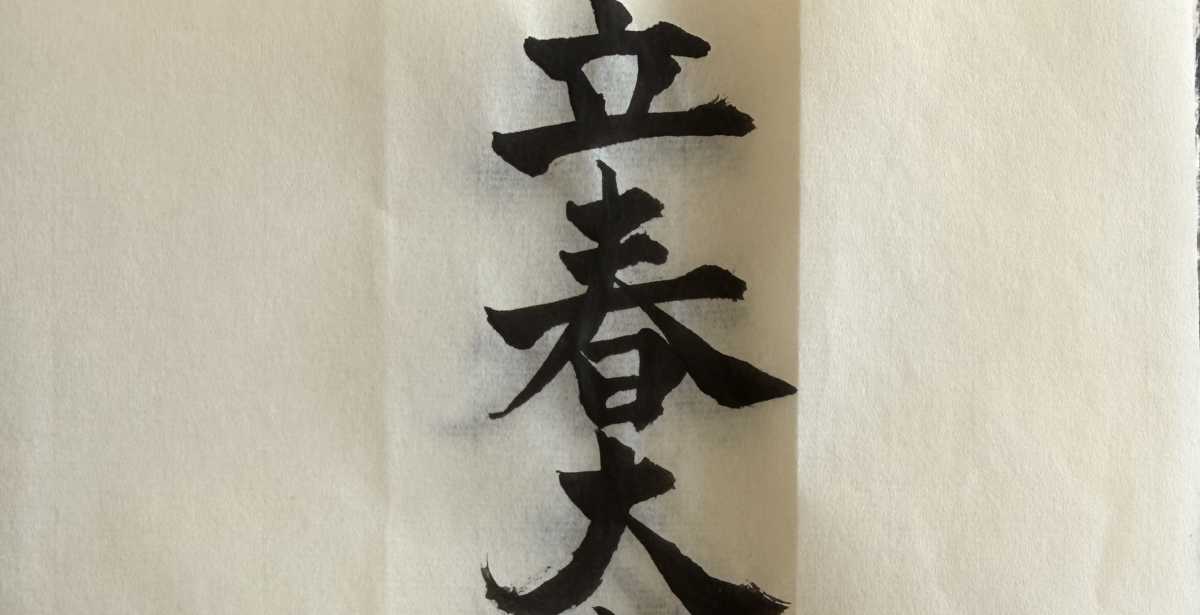 立春大